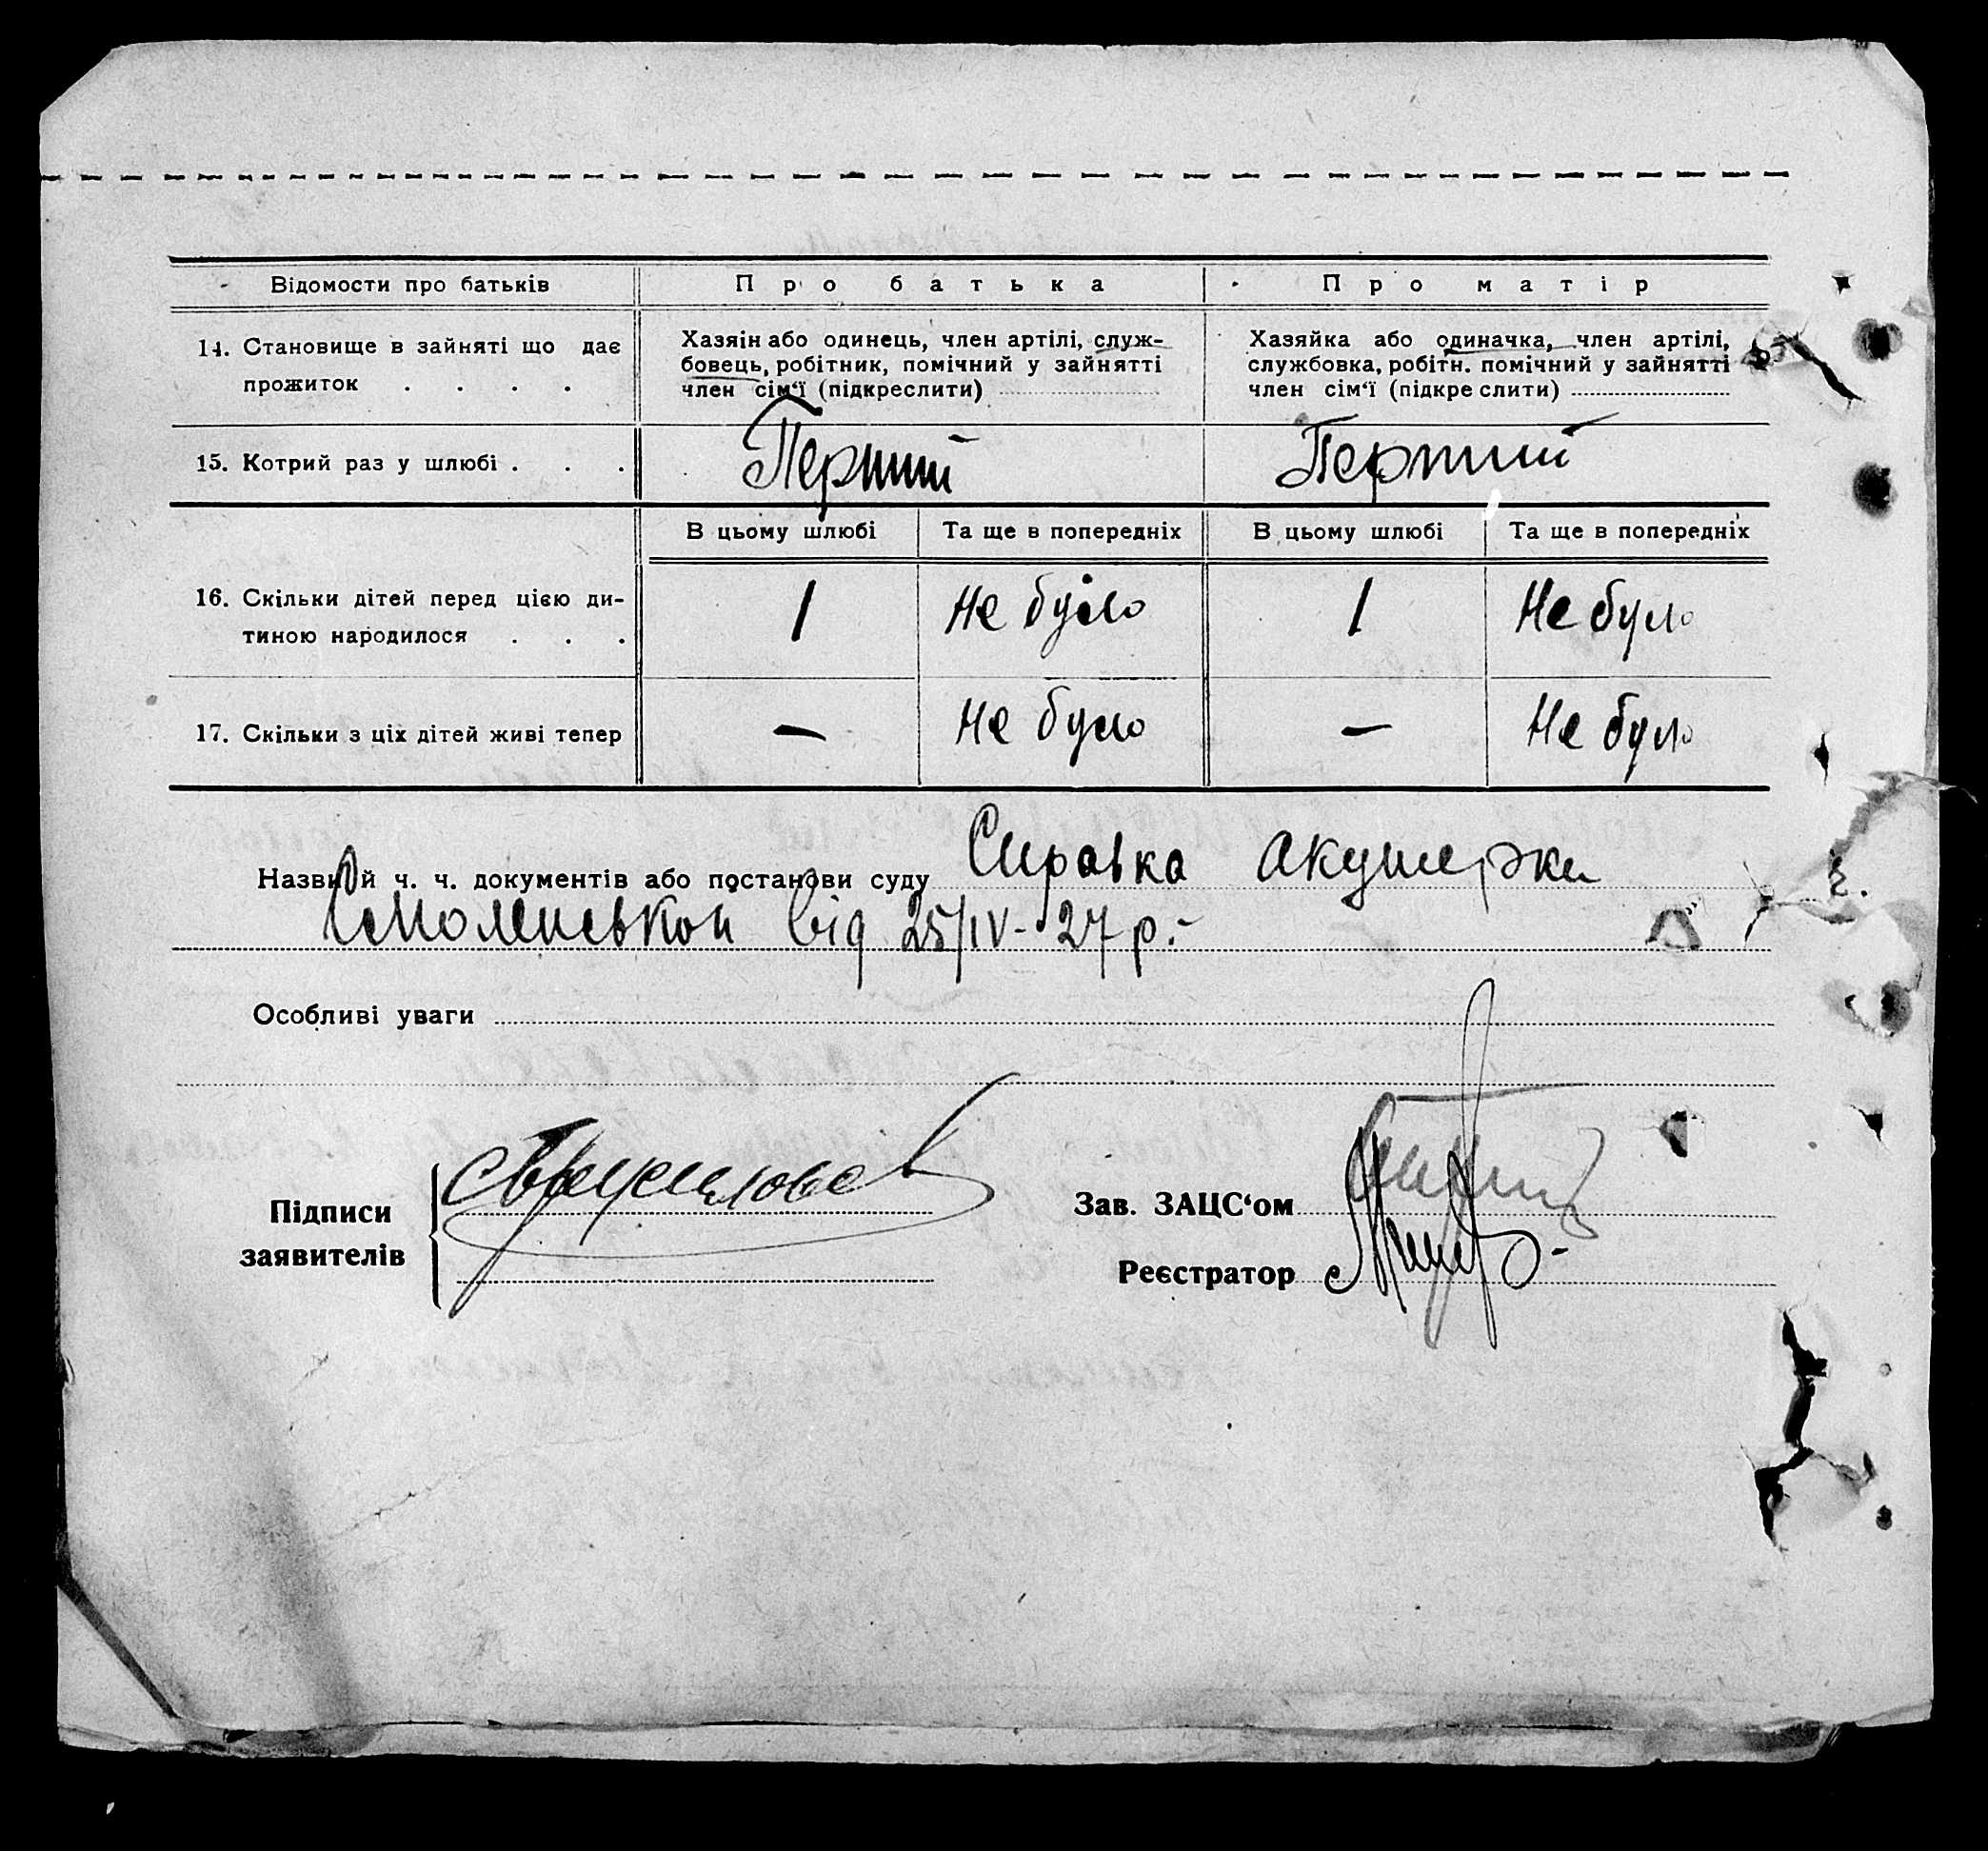 Відомости про батьків Про батька Про матір
14. Становище в зайняті що дає прожиток . . . .
Хазяін або одинець, член артілі, служ-
бовець, робітник, помічний у зайнятті
член сім‘ї (підкреслити)
Хазяйка або одиначка, член артілі,
службовка, робітн. помічний у зайнятті
член сім‘ї (підкреслити)
15. Котрий раз у шлюбі . . . Перший Перший
В цьому шлюбі Та ще в попередніх В цьому шлюбі Та ще в попередніх
16. Скільки дітей перед цією ди-
тиною народилося . . . 1 Не було 1 Не було
17. Скільки з ціх дітей живі тепер — Не було — Не було
Назви й ч. ч. документів або постанови суду Справка акушерки
Смоленськой від 25/IV-27 р.-
Особливі уваги
Підписи
заявителів
Зав. ЗАЦС‘ом
Реєстратор